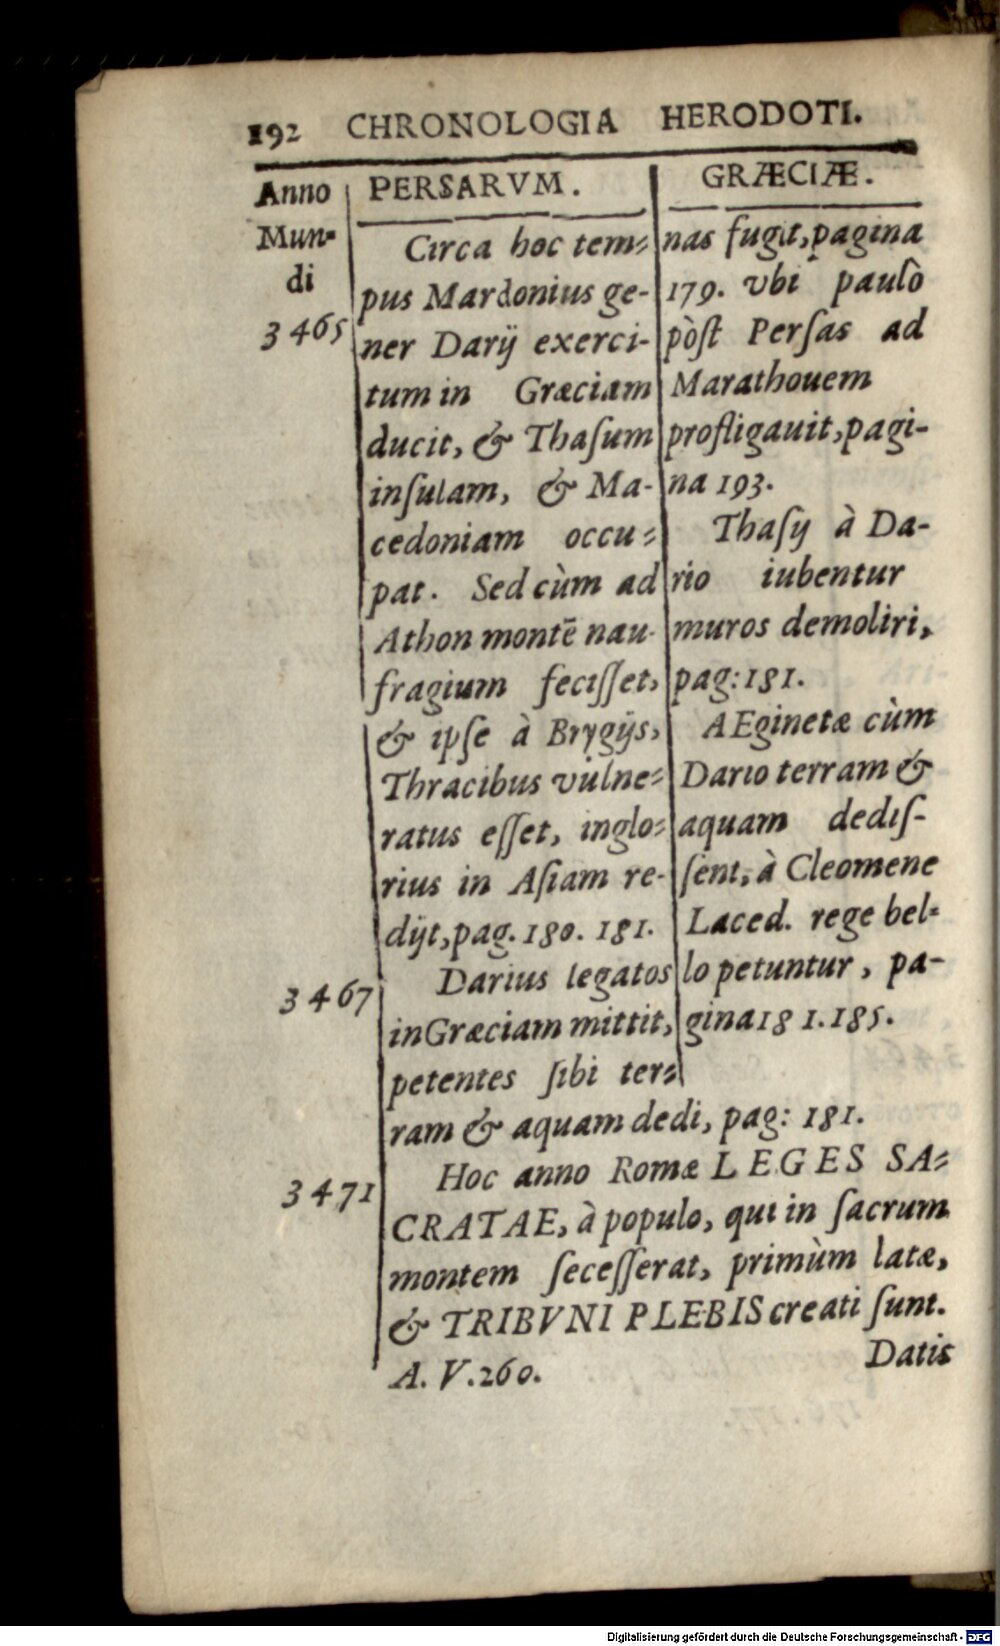 192 CHRONOLOGIA HERODOTI.
Anno
Mun=
di
3465
PERSARVM.
Circa hoc tem=
pus Mardonius ge-
ner Darij exerci-
tum in Græciam
ducit, & Thaſum
inſulam, & Ma-
cedoniam occu=
pat. Sed cùm ad
Athon montē nau-
fragium feciſſet,
& ipſe à Brygijs,
Thracibus vulne=
ratus eſſet, inglo=
rius in Aſiam re-
dijt, pag. 180. 181.
3467
Darius legatos
in Græciam mittit,
petentes ſibi ter=
GRÆCIÆ.
nas fugit, pagina
179. vbi paulò
pòſt Perſas ad
Marathouem
profligauit, pagi-
na 193.
Thaſij à Da-
rio iubentur
muros demoliri,
pag: 181.
AEginetæ cùm
Dario terram &
aquam dediſ-
ſent, à Cleomene
Laced. rege bel=
lo petuntur, pa-
gina 181. 185.
ram & aquam dedi, pag: 181.
3471
Hoc anno Romæ LEGES SA=
CRATAE, à populo, qui in ſacrum
montem ſeceſſerat, primùm latæ,
& TRIBVNI PLEBIS creati ſunt.
A. V. 260.
Datis
Digitalisierung gefördert durch die Deutsche Forschungsgemeinschaft - DFG